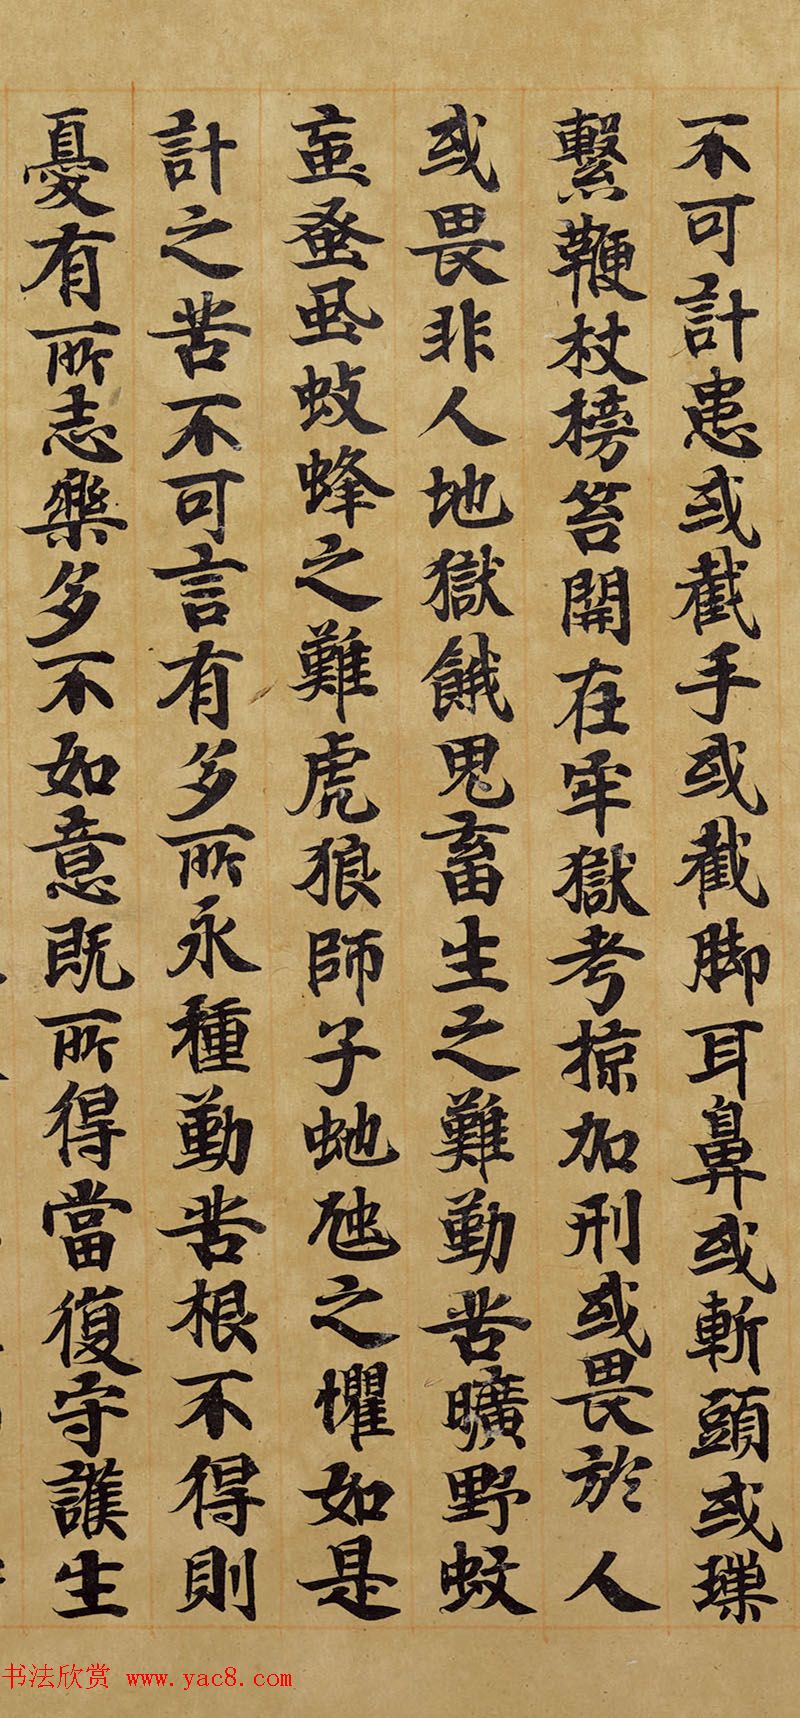 不可計患或截手或截脚耳鼻或斬頭或㻫
繫鞭杖搒笞閇在牢獄考掠加刑或畏於人
或畏非人地獄餓鬼畜生之難勤苦曠野蚊
蝱蚤虱蚑蜂之難虎狼師子虵虺之懼如是
計之苦不可言有多所永種勤苦根不得則
憂有所志樂多不如意既所得當復守護生
书法欣赏 www.yac8.com